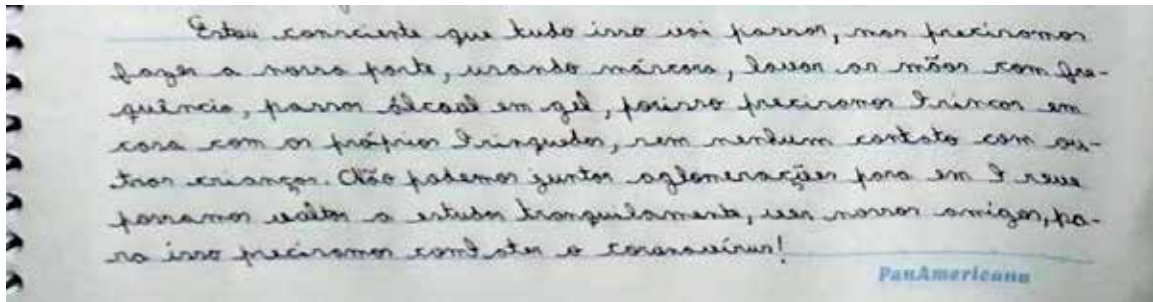 Estou consciente que tudo isso vai passar, mas precisamos
fazer a nossa parte, usando máscara, lavar as mãos com fre-
quência, passar álcool em gel, porisso precisamos brincar em
casa com os próprios brinquedos, sem nenhum contato com ou-
tras crianças. Não podemos juntar aglomerações para em breve
possamos voltar a estudar tranquilamente, ver nossos amigos, pa-
ra isso precisamos combater o coronavírus!
PanAmericana